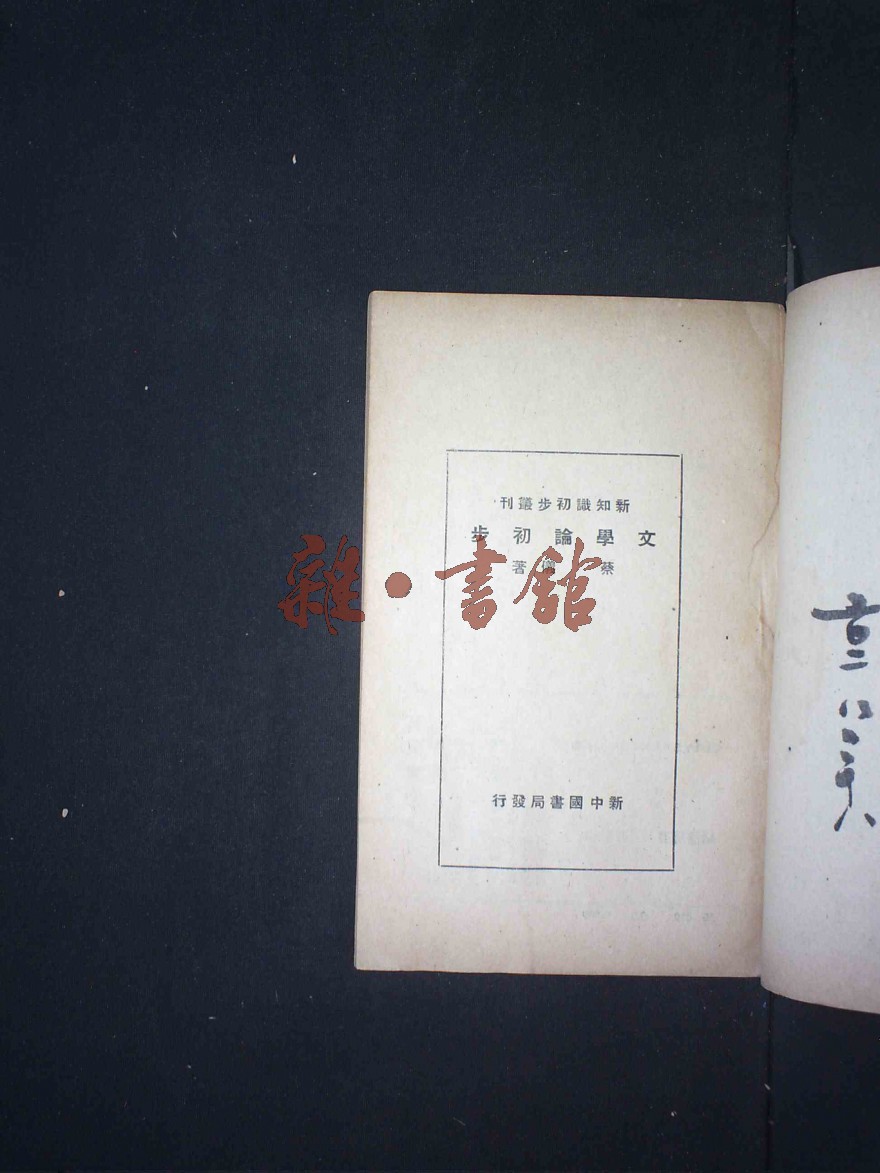 新知識初步叢刊
文學論初步
蔡儀著
雜·書館
新中國書局發行